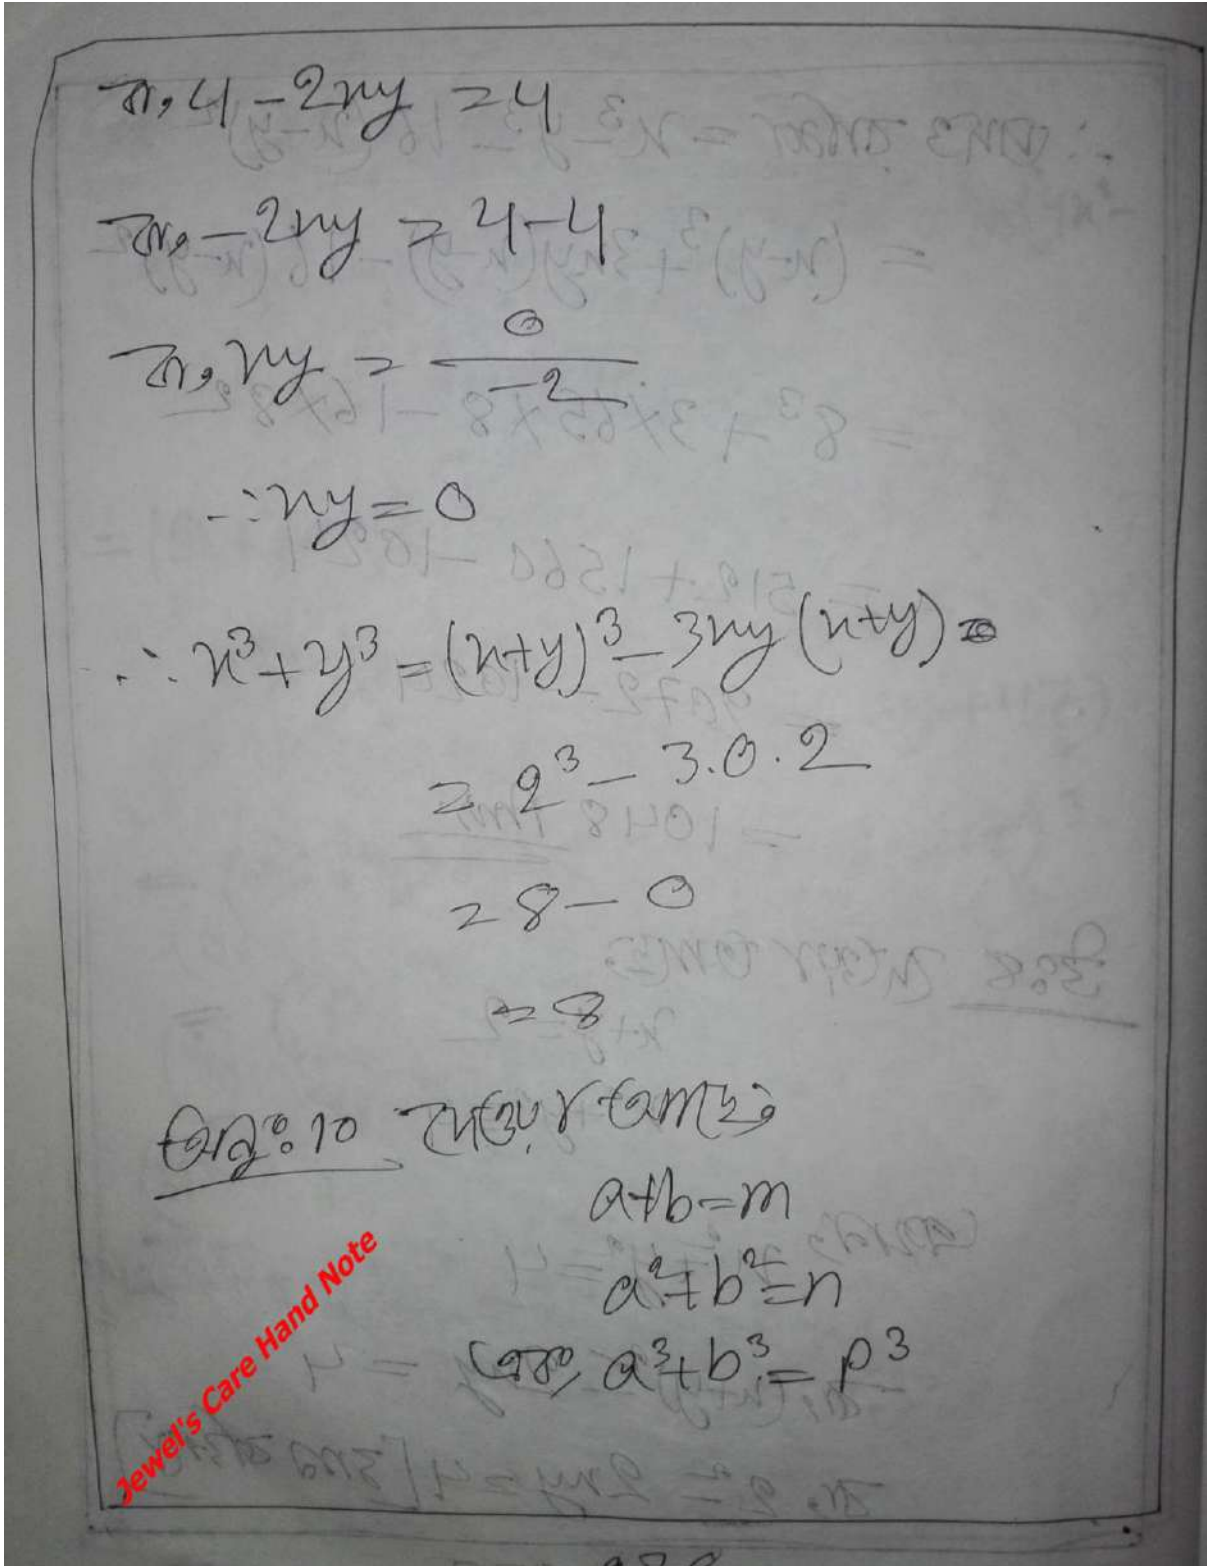 বা, 4 - 2xy = 4
বা, -2xy = 4-4
বা, xy = 0/-2
∴ xy = 0
∴ x³ + y³ = (x+y)³ - 3xy (x+y)
= 2³ - 3.0.2
= 8 - 0
= 8
প্রশ্ন: 10 দেওয়া আছে,
a+b=m
a²+b²=n
এবং, a³+b³= p³
Jewel's Care Hand Note